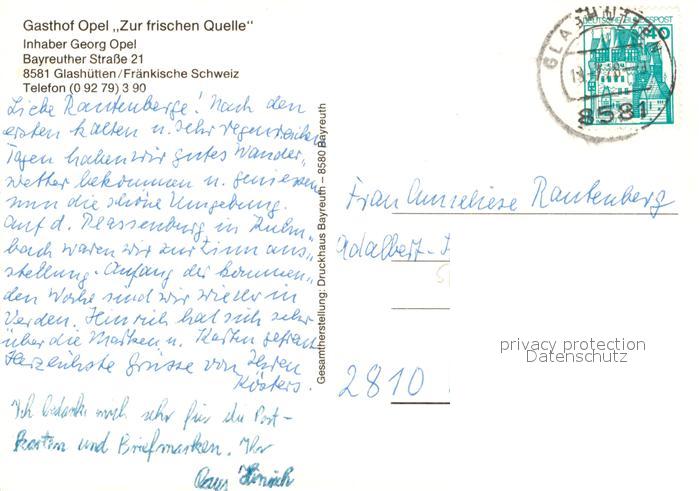 Gasthof Opel „Zur frischen Quelle"
Inhaber Georg Opel
Bayreuther Straße 21
8581 Glashütten/Fränkische Schweiz
Telefon (0 92 79) 3 90
Liebe Rautenbergs! Nach den
ersten kalten u. sehr regenreichen
Tagen haben wir gutes Wander„
wetter bekommen u. geniessen
nun die schöne Umgebung.
Auf d. Plassenburg in Kulm„
bach waren wir zur Zinn aus„
stellung. Anfang der kommen„
den Woche sind wir wieder in
Verden. Hinrich hat sich sehr
über die Marken u. Karten gefreut
Herzlichste Grüsse von Ihren
Kösters.
Ich bedanke mich sehr für die Post-
karten und Briefmarken. Ihr
Hinrich
Gesamtherstellung: Druckhaus Bayreuth – 8580 Bayreuth
DEUTSCHE BUNDESPOST
40
8581
Frau Anneliese Rautenberg
Adalbert-
2810
privacy protection
Datenschutz